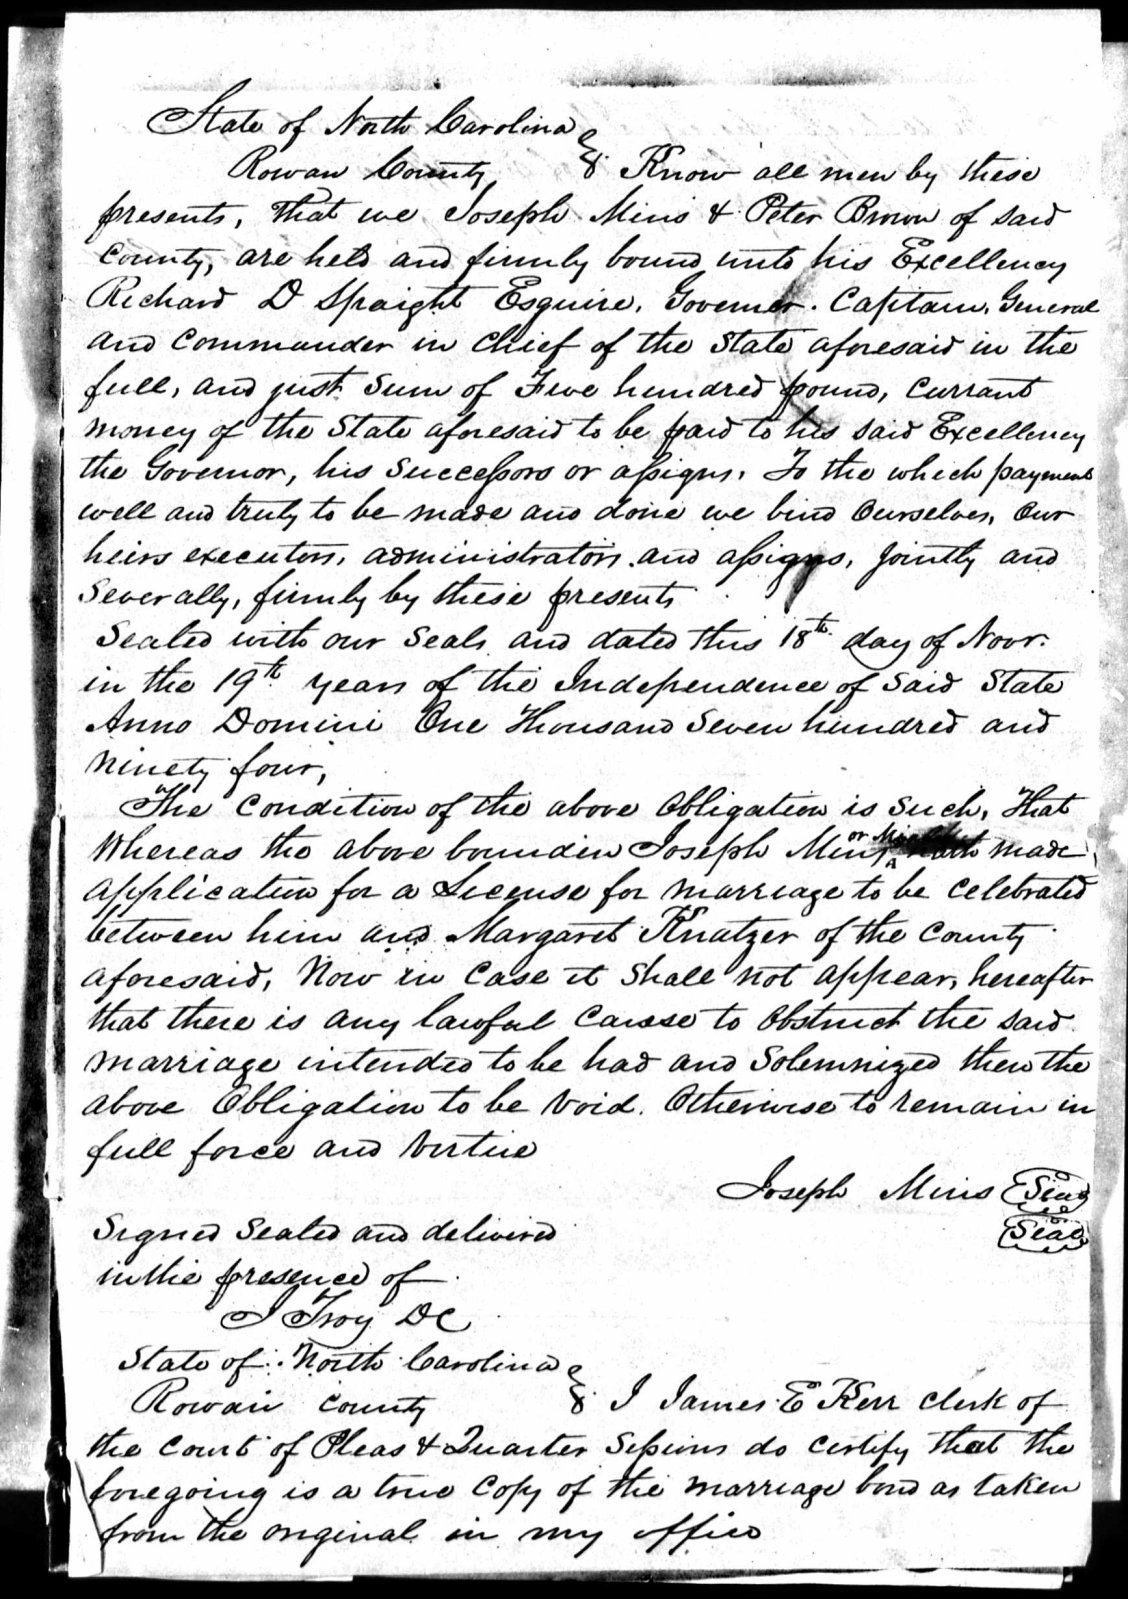 State of North Carolina
Rowan County & Know all men by these
presents, that we Joseph Minis & Peter Brown of said
County, are held and firmly bound unto his Excellency
Richard D Spaight Esquire, Governor. Captain, General
and Commander in Chief of the State aforesaid in the
full, and just Sum of Five hundred pound, Currant
money of the State aforesaid to be paid to his said Excellency
the Governor, his Successors or assigns, To the which payment
well and truly to be made and done we bind Ourselves, Our
heirs executors, administrators and assigns, Jointly and
Severally, firmly by these presents
Sealed with our Seals and dated this 18th day of Novr.
in the 19th years of the Independence of Said State
Anno Domini One Thousand Seven hundred and
Ninety four,
The Condition of the above Obligation is Such, That
Whereas the above bounden Joseph hath made
application for a License for marriage to be Celebrated
between him and Margaret Knatzer of the County
aforesaid, Now in Case it Shall not appear, hereafter
that there is any lawful Cause to Obstruct the said
marriage intended to be had and Solemnized then the
above Obligation to be Void. Otherwise to remain in
full force and Virtue
Joseph Minis Seal
Seal
Signed Sealed and delivered
in the presence of
J Troy DC
State of North Carolina
Rowan County & I James E Kerr Clerk of
the Court of Pleas & Quarter Sessions do Certify that the
foregoing is a true Copy of the marriage bond as taken
from the original in my office